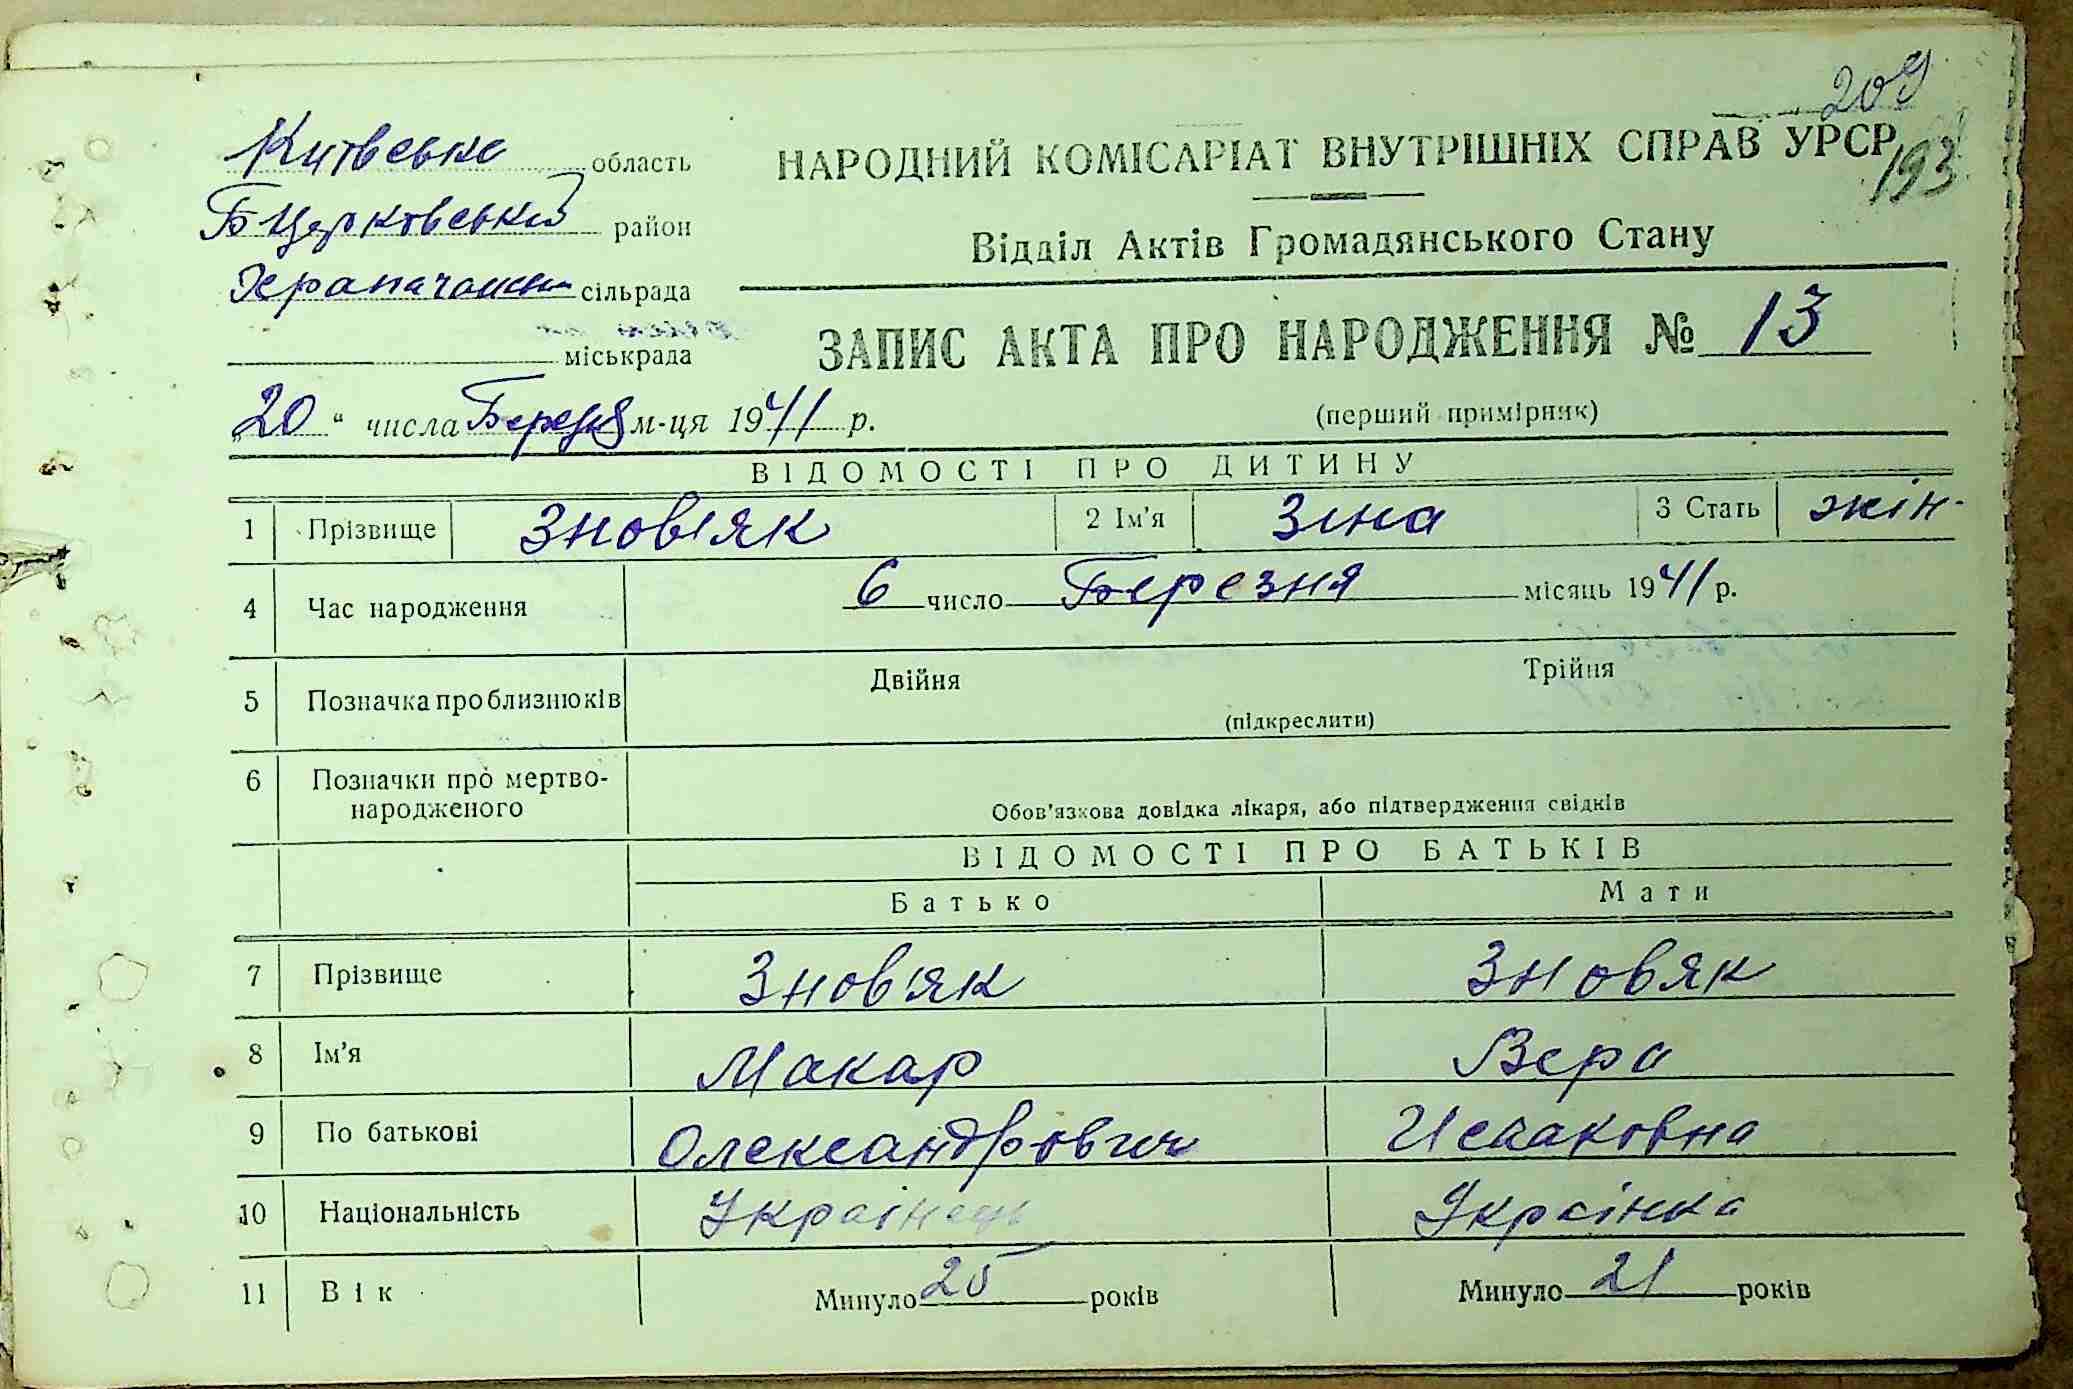 209
193
Київська область
НАРОДНИЙ КОМІСАРІАТ ВНУТРІШНІХ СПРАВ УРСР
Б Церковський район
Відділ Актів Громадянського Стану
сільрада
міськрада
ЗАПИС АКТА ПРО НАРОДЖЕННЯ № 13
„20“ числа Березня м-ця 1941 р.
(перший примірник)
ВІДОМОСТІ ПРО ДИТИНУ
1 Прізвище Знов'як 2 Ім'я Зіна 3 Стать жін-
4 Час народження 6 число Березня місяць 1941 р.
5 Позначка про близнюків Двійня Трійня
(підкреслити)
6 Позначки про мертво-
народженого
Обов'язкова довідка лікаря, або підтвердження свідків
ВІДОМОСТІ ПРО БАТЬКІВ
Батько Мати
7 Прізвище Знов'як Зновяк
8 Ім'я Макар Вера
9 По батькові Олександрович Исааковна
10 Національність Українець Українка
11 Вік Минуло 25 років Минуло 21 років